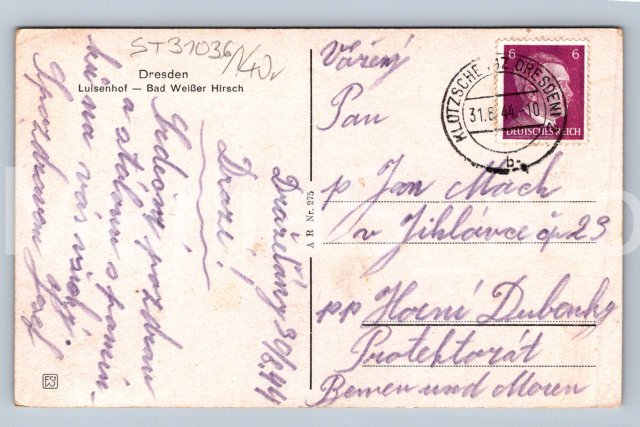 ST31036/140,-
Dresden
Luisenhof — Bad Weißer Hirsch
Drážďany 30/8.44
Drazí!
Srdečný pozdrav
a stálou
na vás
Spozdravem Josef
A R Nr. 275
6 6
DEUTSCHES REICH
KLOTZSCHE (BZ DRESDEN)
31.8.44.-10
b
Vážený
Pan
p Jan Mach
v Jihlávce čp 23
pp Horní Dubenky
Protektorát
Bemen und Moren